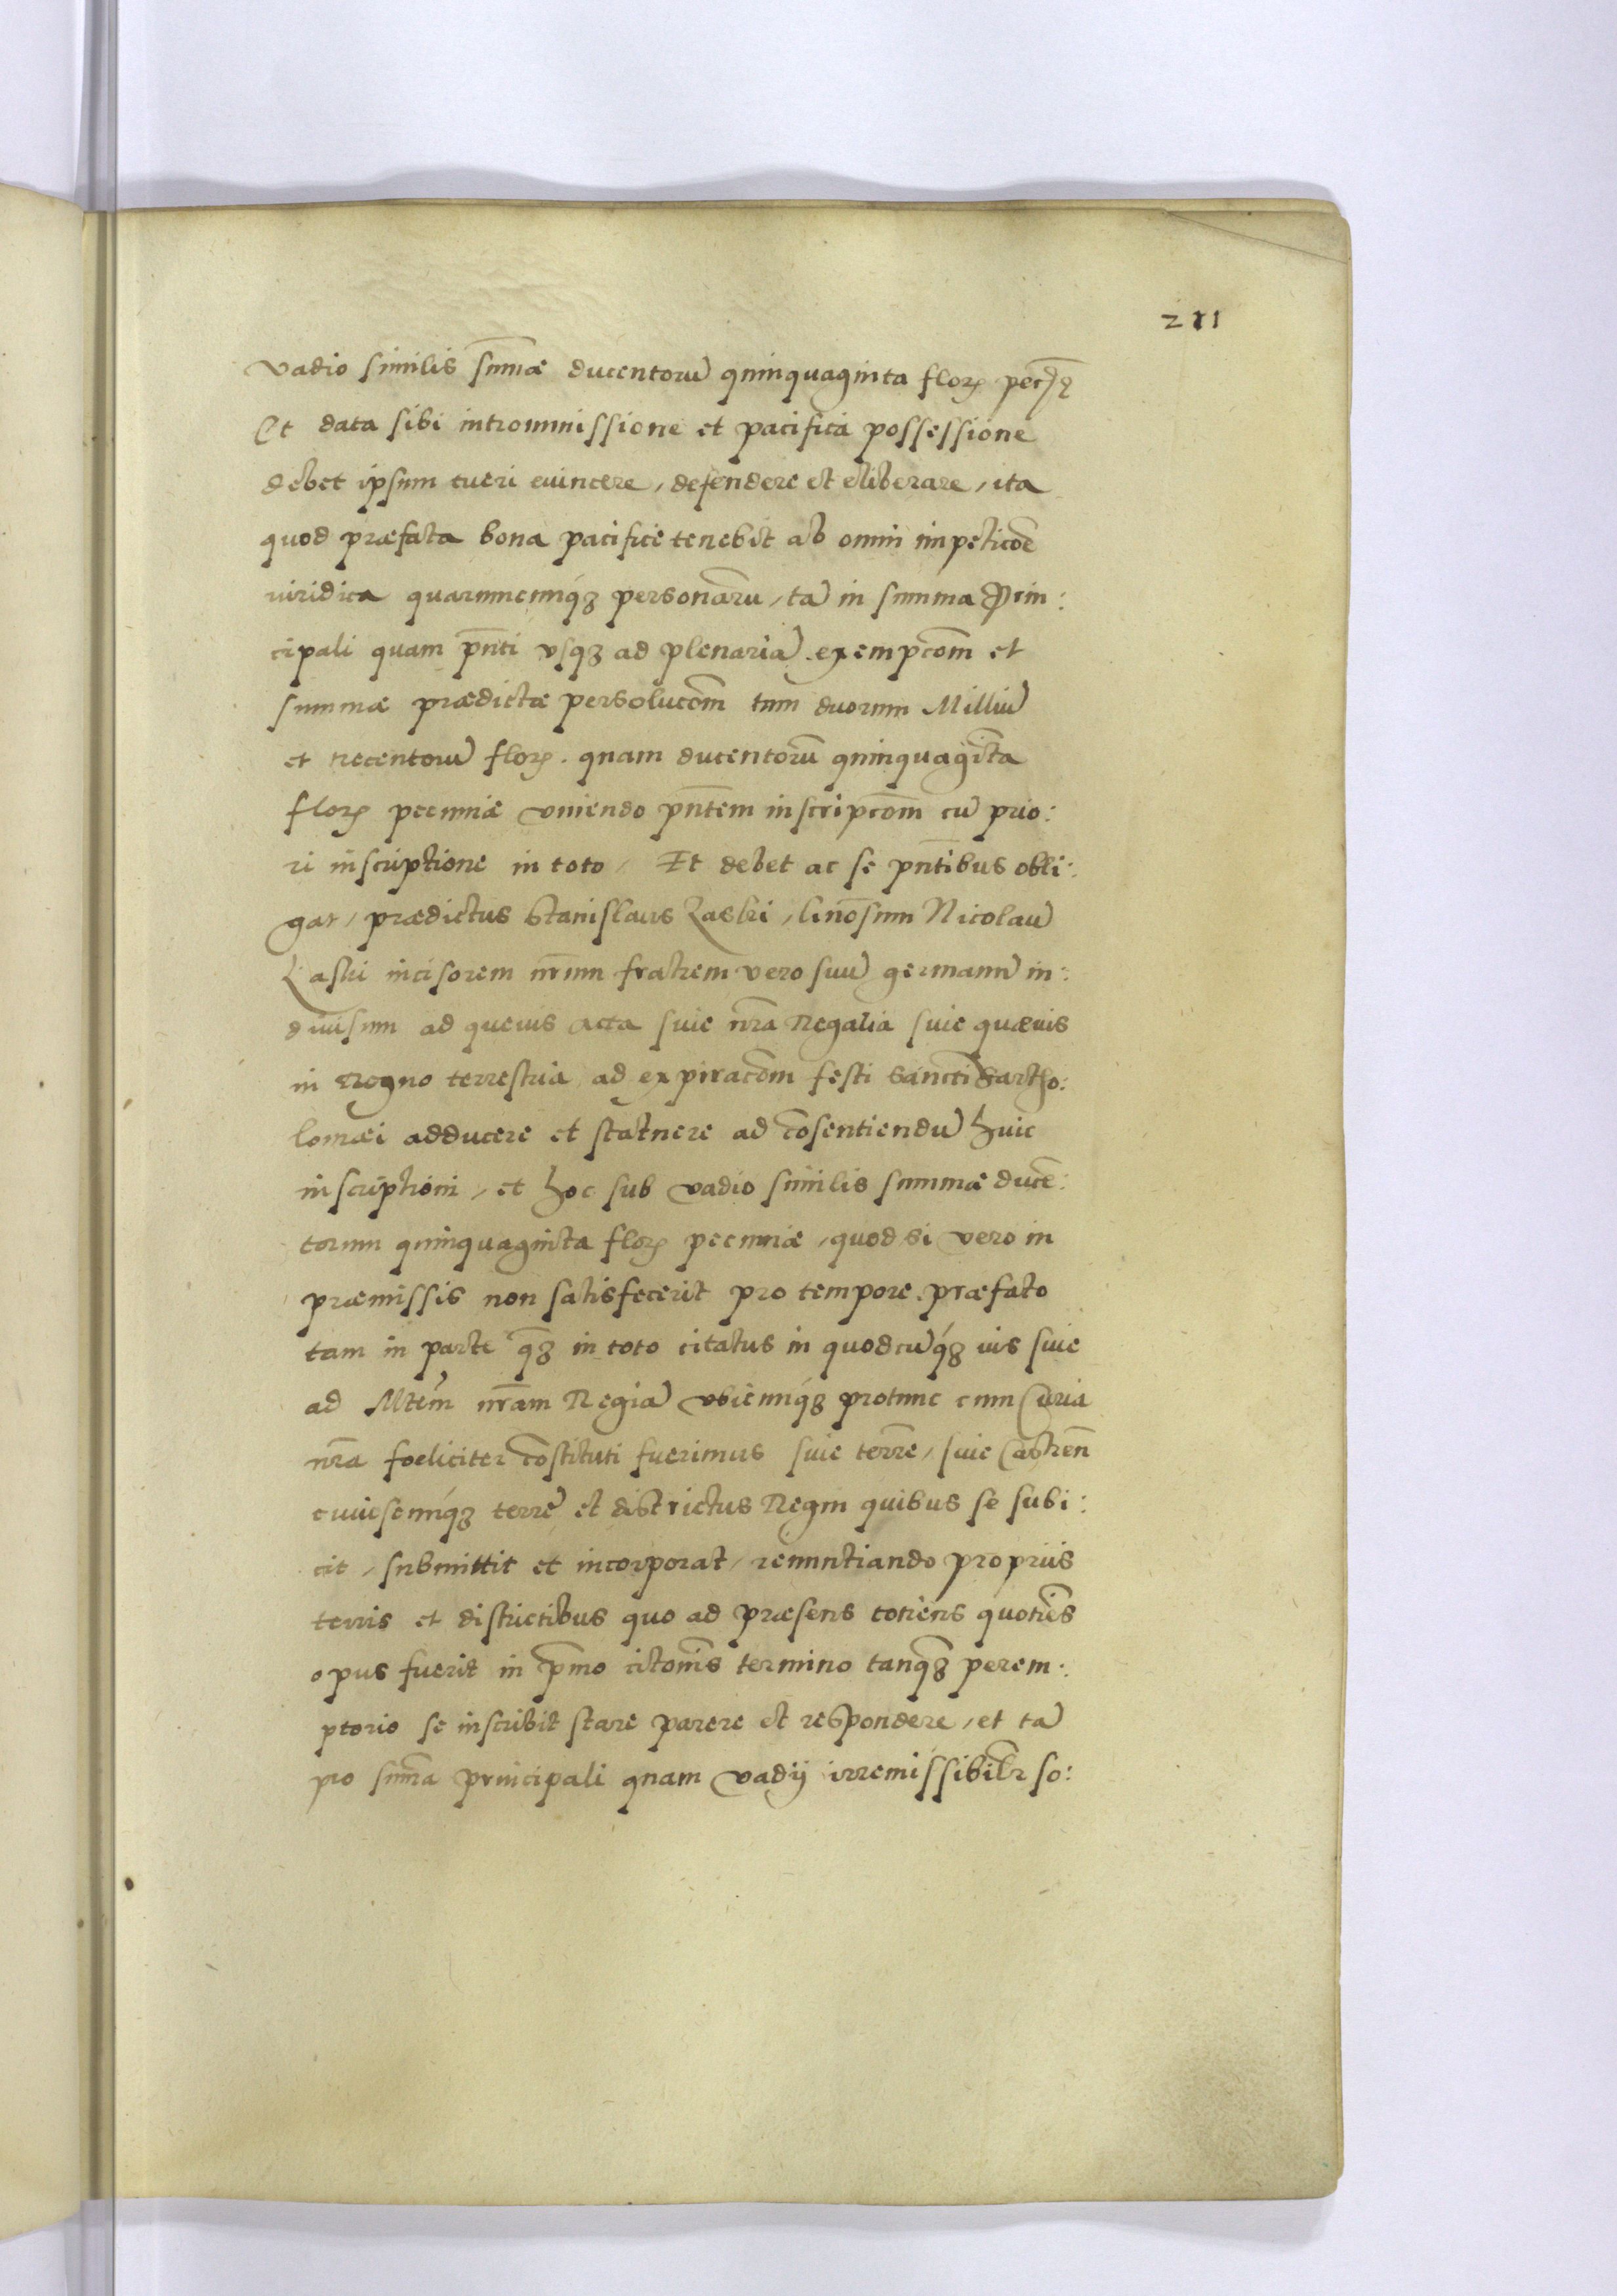 211
vadio similis sum̄æ ducentorū quinquaginta flor̄ pec̄
Et data sibi intromissione et pacifica possessione
debet ipsum tueri euincere, defendere et eliberare, ita
quod præfata bona pacifice tenebit ab omni impeticōe
iuridica quarumcunq₃ personarū, tā in summa Prin:
cipali quam pn̄ti vsq₃ ad plenariā exempcōm et
summæ prædictæ persolucōm tum duorum Milliū
et trecentorū flor̄. quam ducentorū quinquaginta
flor̄ pecuniæ vniendo pn̄tem inscripcōm cū prio:
ri inscriptione in toto, Et debet ac se pn̄tibus obli:
gat, prædictus Stanislaus Laski, Nicolaū
Laski incisorem nr̄um fratrem vero suū germanū in:
diuisum ad queuis acta siue nr̄a Regalia siue quæuis
in Regno terrestria ad expiracōm festi sancti Bartho:
lomæi adducere et statuere ad cōsentiendū huic
inscriptioni, et hoc sub vadio similis summæ ducē:
torum quinquaginta flor̄ pecuniæ, quod si vero in
præmissis non satisfecerit pro tempore præfato
tam in parte q̄₃ in toto citatus in quodcūq₃ ius siue
ad Mtem nr̄am Regiā vbicunq₃ protunc cum Curia
nr̄a foeliciter cōstituti fuerimus siue terrē, siue Castren̄
cuiuscunq₃ terræ et districtus Regni quibus se subi:
cit, submittit et incorporat, renuntiando propriis
terris et districtibus quo ad præsens totiens quotiēs
opus fuerit in p̄mo citonīs termino tanq̄₃ perem:
ptorio se inscribit stare parere et respondere, et tā
pro sum̄a principali quam vadij irremissibilr̄ so: